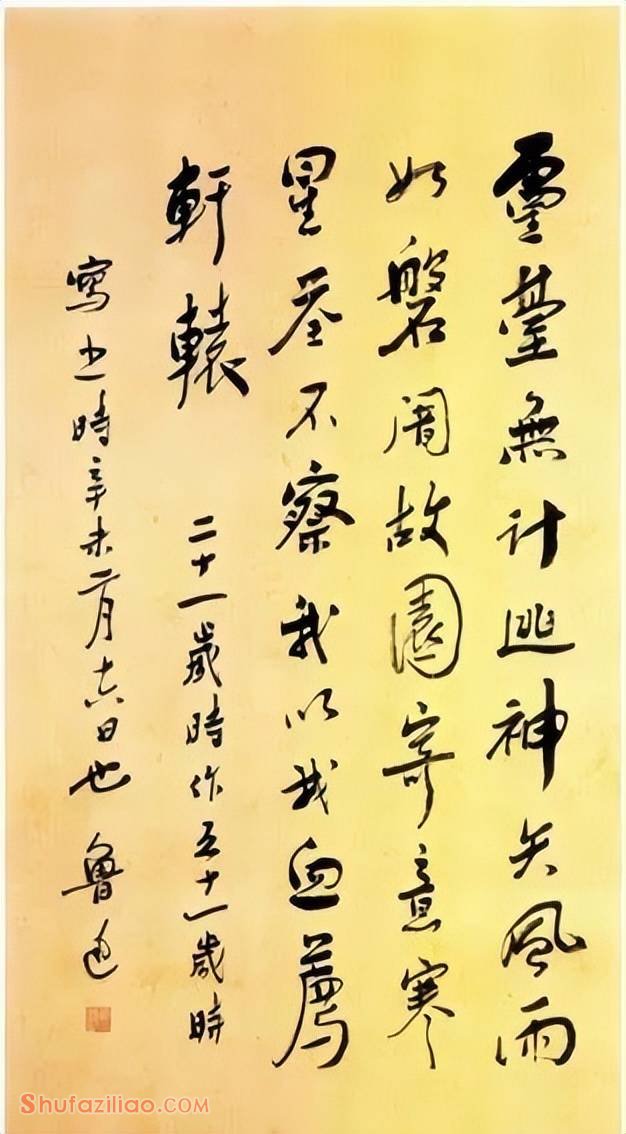 靈臺無計逃神矢風雨
如磐闇故園寄意寒
星荃不察我以我血薦
軒轅 二十一歲時作五十一歲時
寫之時辛未二月十六日也 魯迅
Shufaziliao.com